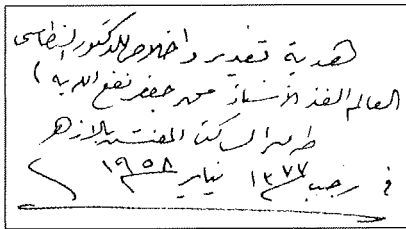 هدية تقدير واخلاص للدكتور النطاسى
العالم الفذ الأستاذ محمد جعفر نفع الله به
طه الساكت المفتش بالازهر
فى رجب ١٣٧٧ يناير ١٩٥٨